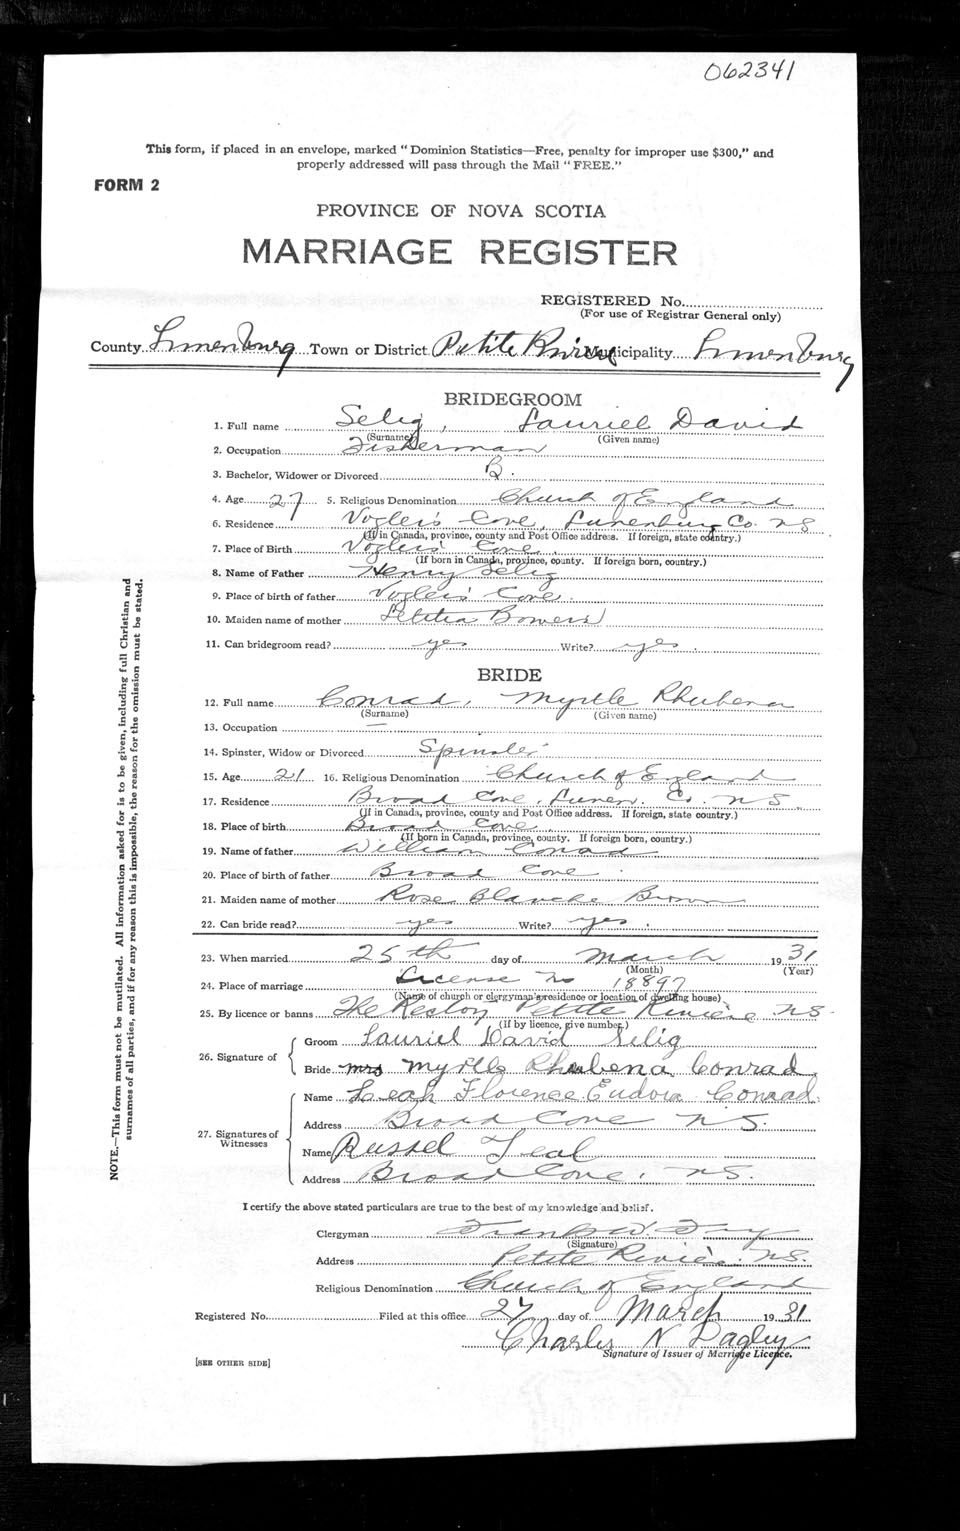 062341
This form, if placed in an envelope, marked "Dominion Statistics—Free, penalty for improper use $300," and
properly addressed will pass through the Mail "FREE."
FORM 2
PROVINCE OF NOVA SCOTIA
MARRIAGE REGISTER
REGISTERED No.
(For use of Registrar General only)
County Lunenburg Town or District Petite Riviere Municipality Lunenburg
BRIDEGROOM
1. Full name Selig, Lauriel David
(Surname) (Given name)
2. Occupation Fisherman
3. Bachelor, Widower or Divorced B.
4. Age 27 5. Religious Denomination Church of England
6. Residence Vogler's Cove, Lunenburg Co. N S
(If in Canada, province, county and Post Office address. If foreign, state country.)
7. Place of Birth Voglers' Cove.
(If born in Canada, province, county. If foreign born, country.)
8. Name of Father Henry Selig
9. Place of birth of father Vogler's Cove.
10. Maiden name of mother Letitia Bowers
11. Can bridegroom read? yes Write? yes.
BRIDE
12. Full name Conrad, Myrtle Rhubena
(Surname) (Given name)
13. Occupation —
14. Spinster, Widow or Divorced Spinster
15. Age 21 16. Religious Denomination Church of England
17. Residence Broad Cove, Lunen. Co. N S.
(If in Canada, province, county and Post Office address. If foreign, state country.)
18. Place of birth Broad Cove
(If born in Canada, province, county. If foreign born, country.)
19. Name of father William Conrad
20. Place of birth of father Broad Cove.
21. Maiden name of mother Rose Blanche Brown
22. Can bride read? yes Write? yes.
23. When married 25th day of March 1931
(Month) (Year)
24. Place of marriage License No 18897
(Name of church or clergyman's residence or location of dwelling house)
25. By licence or banns The Rectory Petite Riviere N S.
(If by licence, give number.)
26. Signature of
Groom Lauriel David Selig
Bride mrs Myrtle Rhubena Conrad
27. Signatures of Witnesses
Name Leah Florence Eudora Conrad.
Address Broad Cove N. S.
Name Russel Teal
Address Broad Cove, N. S.
I certify the above stated particulars are true to the best of my knowledge and belief.
Clergyman Frank W.
(Signature)
Address Petite Riviere N S.
Religious Denomination Church of England
Registered No. Filed at this office 27 day of March 1931
Charles N Dagley
Signature of Issuer of Marriage Licence.
[SEE OTHER SIDE]
NOTE.—This form must not be mutilated. All information asked for is to be given, including full Christian and
surnames of all parties, and if for any reason this is impossible, the reason for the omission must be stated.